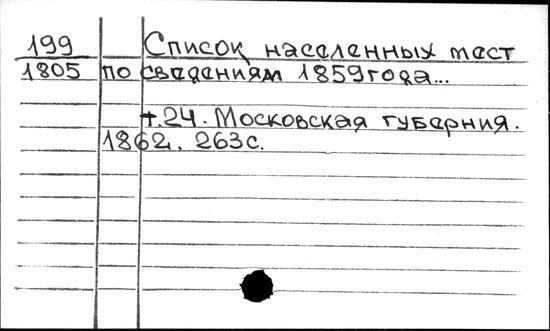 199 Список населенных мест
1805 по сведениям 1859 года...
т.24. Московская губерния.
1862. 263с.